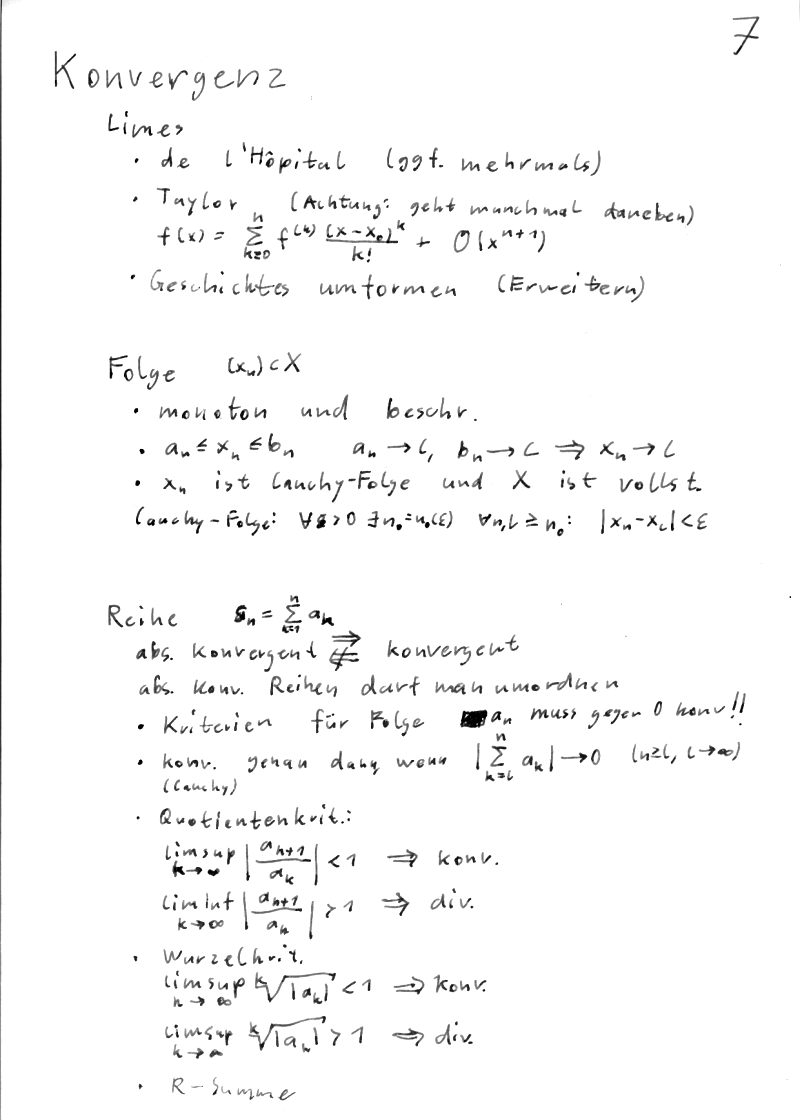 7
Konvergenz
Limes
• de l'Hôpital (ggf. mehrmals)
• Taylor (Achtung: geht manchmal daneben)
f(x) = ∑_{k=0}^{n} f^{(k)} (x-x₀)^k / k! + O(x^{n+1})
• Geschicktes umformen (Erweitern)
Folge (xₙ) ⊂ X
• monoton und beschr.
• aₙ ≤ xₙ ≤ bₙ aₙ → L, bₙ → L ⇒ xₙ → L
• xₙ ist Cauchy-Folge und X ist vollst.
Cauchy-Folge: ∀ε>0 ∃n₀=n₀(ε) ∀n,l ≥ n₀: |xₙ-x_l| < ε
Reihe sₙ = ∑_{k=1}^{n} aₖ
abs. konvergent ⇒ ⇍ konvergent
abs. konv. Reihen darf man umordnen
• Kriterien für Folge aₙ muss gegen 0 konv!!
• konv. genau dann wenn |∑_{k=l}^{n} aₖ| → 0 (n≥l, l→∞)
(Cauchy)
• Quotientenkrit.:
limsup_{k→∞} |a_{k+1} / aₖ| < 1 ⇒ konv.
liminf_{k→∞} |a_{k+1} / aₖ| > 1 ⇒ div.
• Wurzelkrit.
limsup_{n→∞} ᵏ√|aₖ| < 1 ⇒ konv.
limsup_{k→∞} ᵏ√|aₖ| > 1 ⇒ div.
• R-Summe